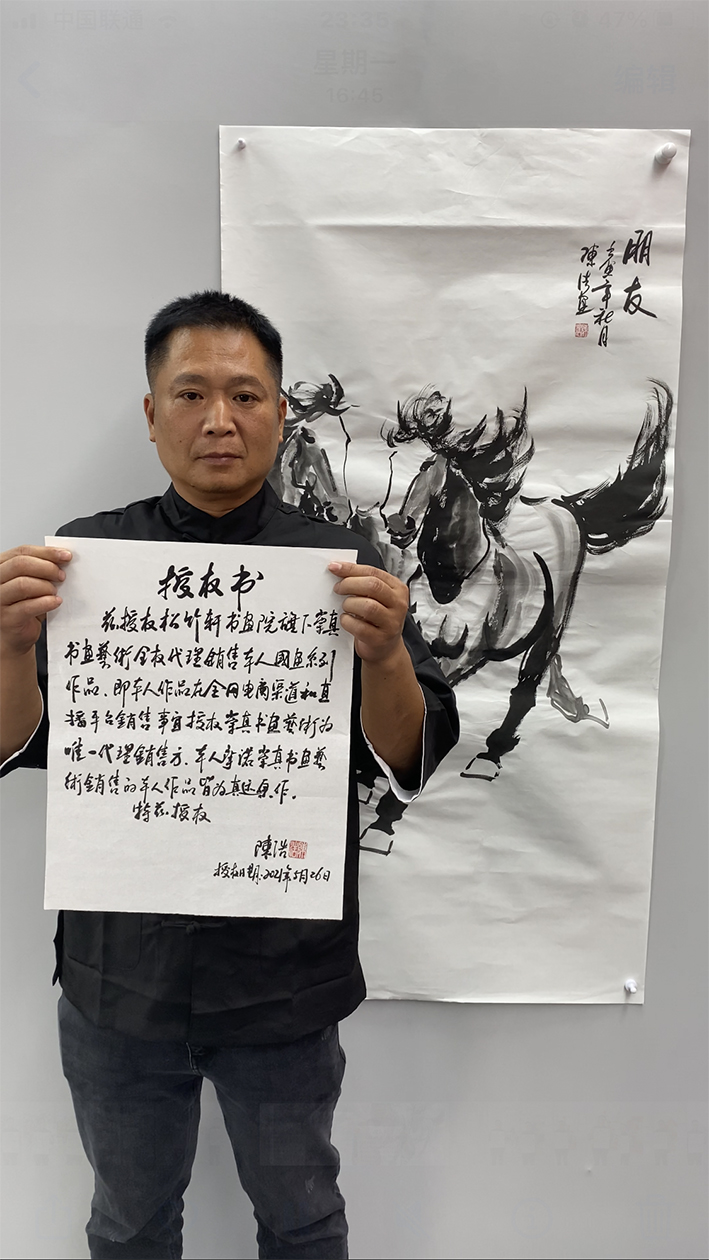 中国联通 23:35 47%
星期一
16:45
编辑
朋友
壬寅年秋月
陳浩画
授权书
兹授权松竹轩书画院旗下崇真
书画藝術全权代理銷售本人國画系列
作品、即本人作品在全网电商渠道和直
播平台銷售事宜授权崇真书画藝術为
唯一代理銷售方、本人承诺崇真书画藝
術銷售的本人作品皆为真迹原作。
特兹授权
陳浩
授权日期:2021年5月26日